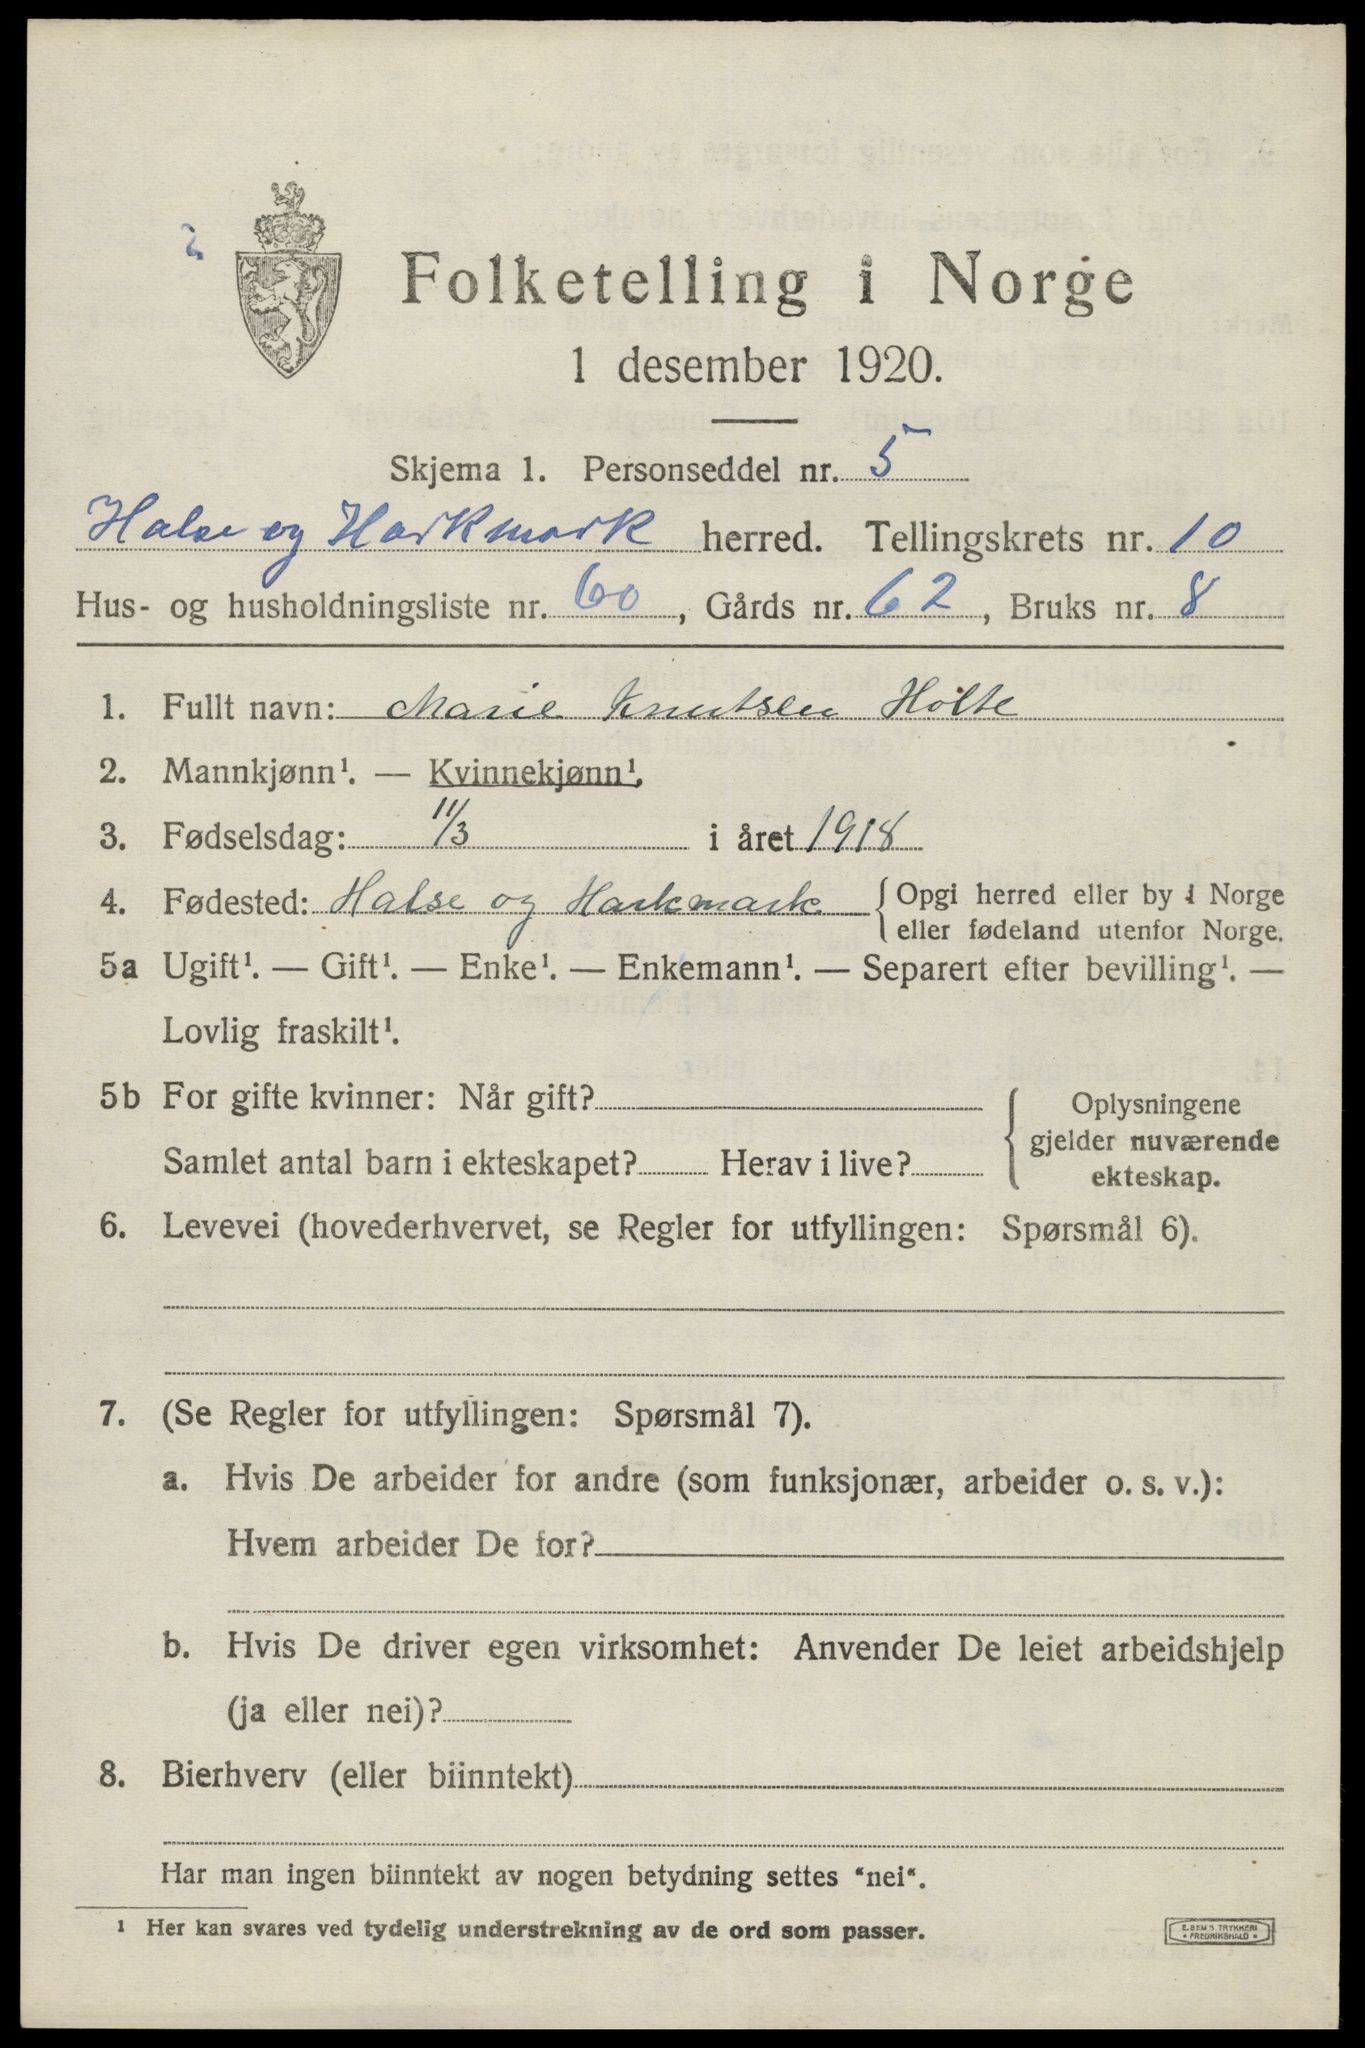 2
Folketelling i Norge
1 desember 1920.
Skjema 1. Personseddel nr. 5
Halse og Harkmark herred. Tellingskrets nr. 10
Hus- og husholdningsliste nr. 60, Gårds nr. 62, Bruks nr. 8
1. Fullt navn: Marie Knutsen Holte
2. Mannkjønn¹. — Kvinnekjønn¹.
3. Fødselsdag: 11/3 i året 1918
4. Fødested: Halse og Harkmark { Opgi herred eller by i Norge
eller fødeland utenfor Norge.
5a Ugift¹. — Gift¹. — Enke¹. — Enkemann¹. — Separert efter bevilling¹. —
Lovlig fraskilt¹.
5b For gifte kvinner: Når gift?
Samlet antal barn i ekteskapet? Herav i live?
{ Oplysningene
gjelder nuværende
ekteskap.
6. Levevei (hovederhvervet, se Regler for utfyllingen: Spørsmål 6).
7. (Se Regler for utfyllingen: Spørsmål 7).
a. Hvis De arbeider for andre (som funksjonær, arbeider o. s. v.):
Hvem arbeider De for?
b. Hvis De driver egen virksomhet: Anvender De leiet arbeidshjelp
(ja eller nei)?
8. Bierhverv (eller biinntekt)
Har man ingen biinntekt av nogen betydning settes "nei".
¹ Her kan svares ved tydelig understrekning av de ord som passer.
E. SEM'S TRYKKERI
* FREDRIKSHALD *